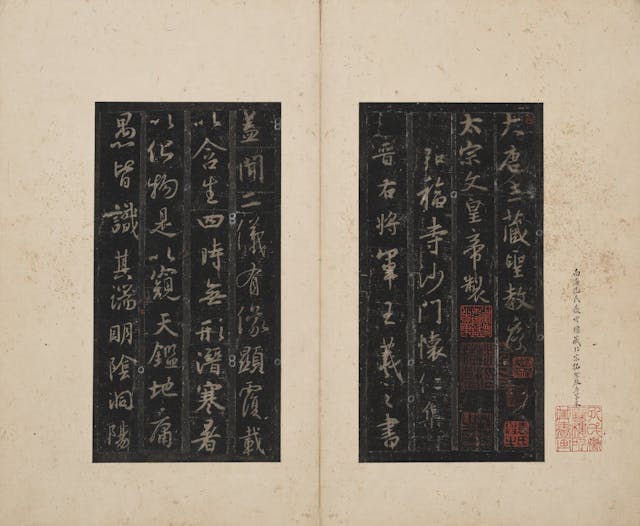 南海孔氏嶽雪樓
大唐三藏聖教序
太宗文皇帝製
弘福寺沙門懷仁集
晉右將軍王羲之書
蓋聞二儀有像顯覆載
以含生四時無形潛寒暑
以化物是以窺天鑑地庸
愚皆識其端明陰洞陽